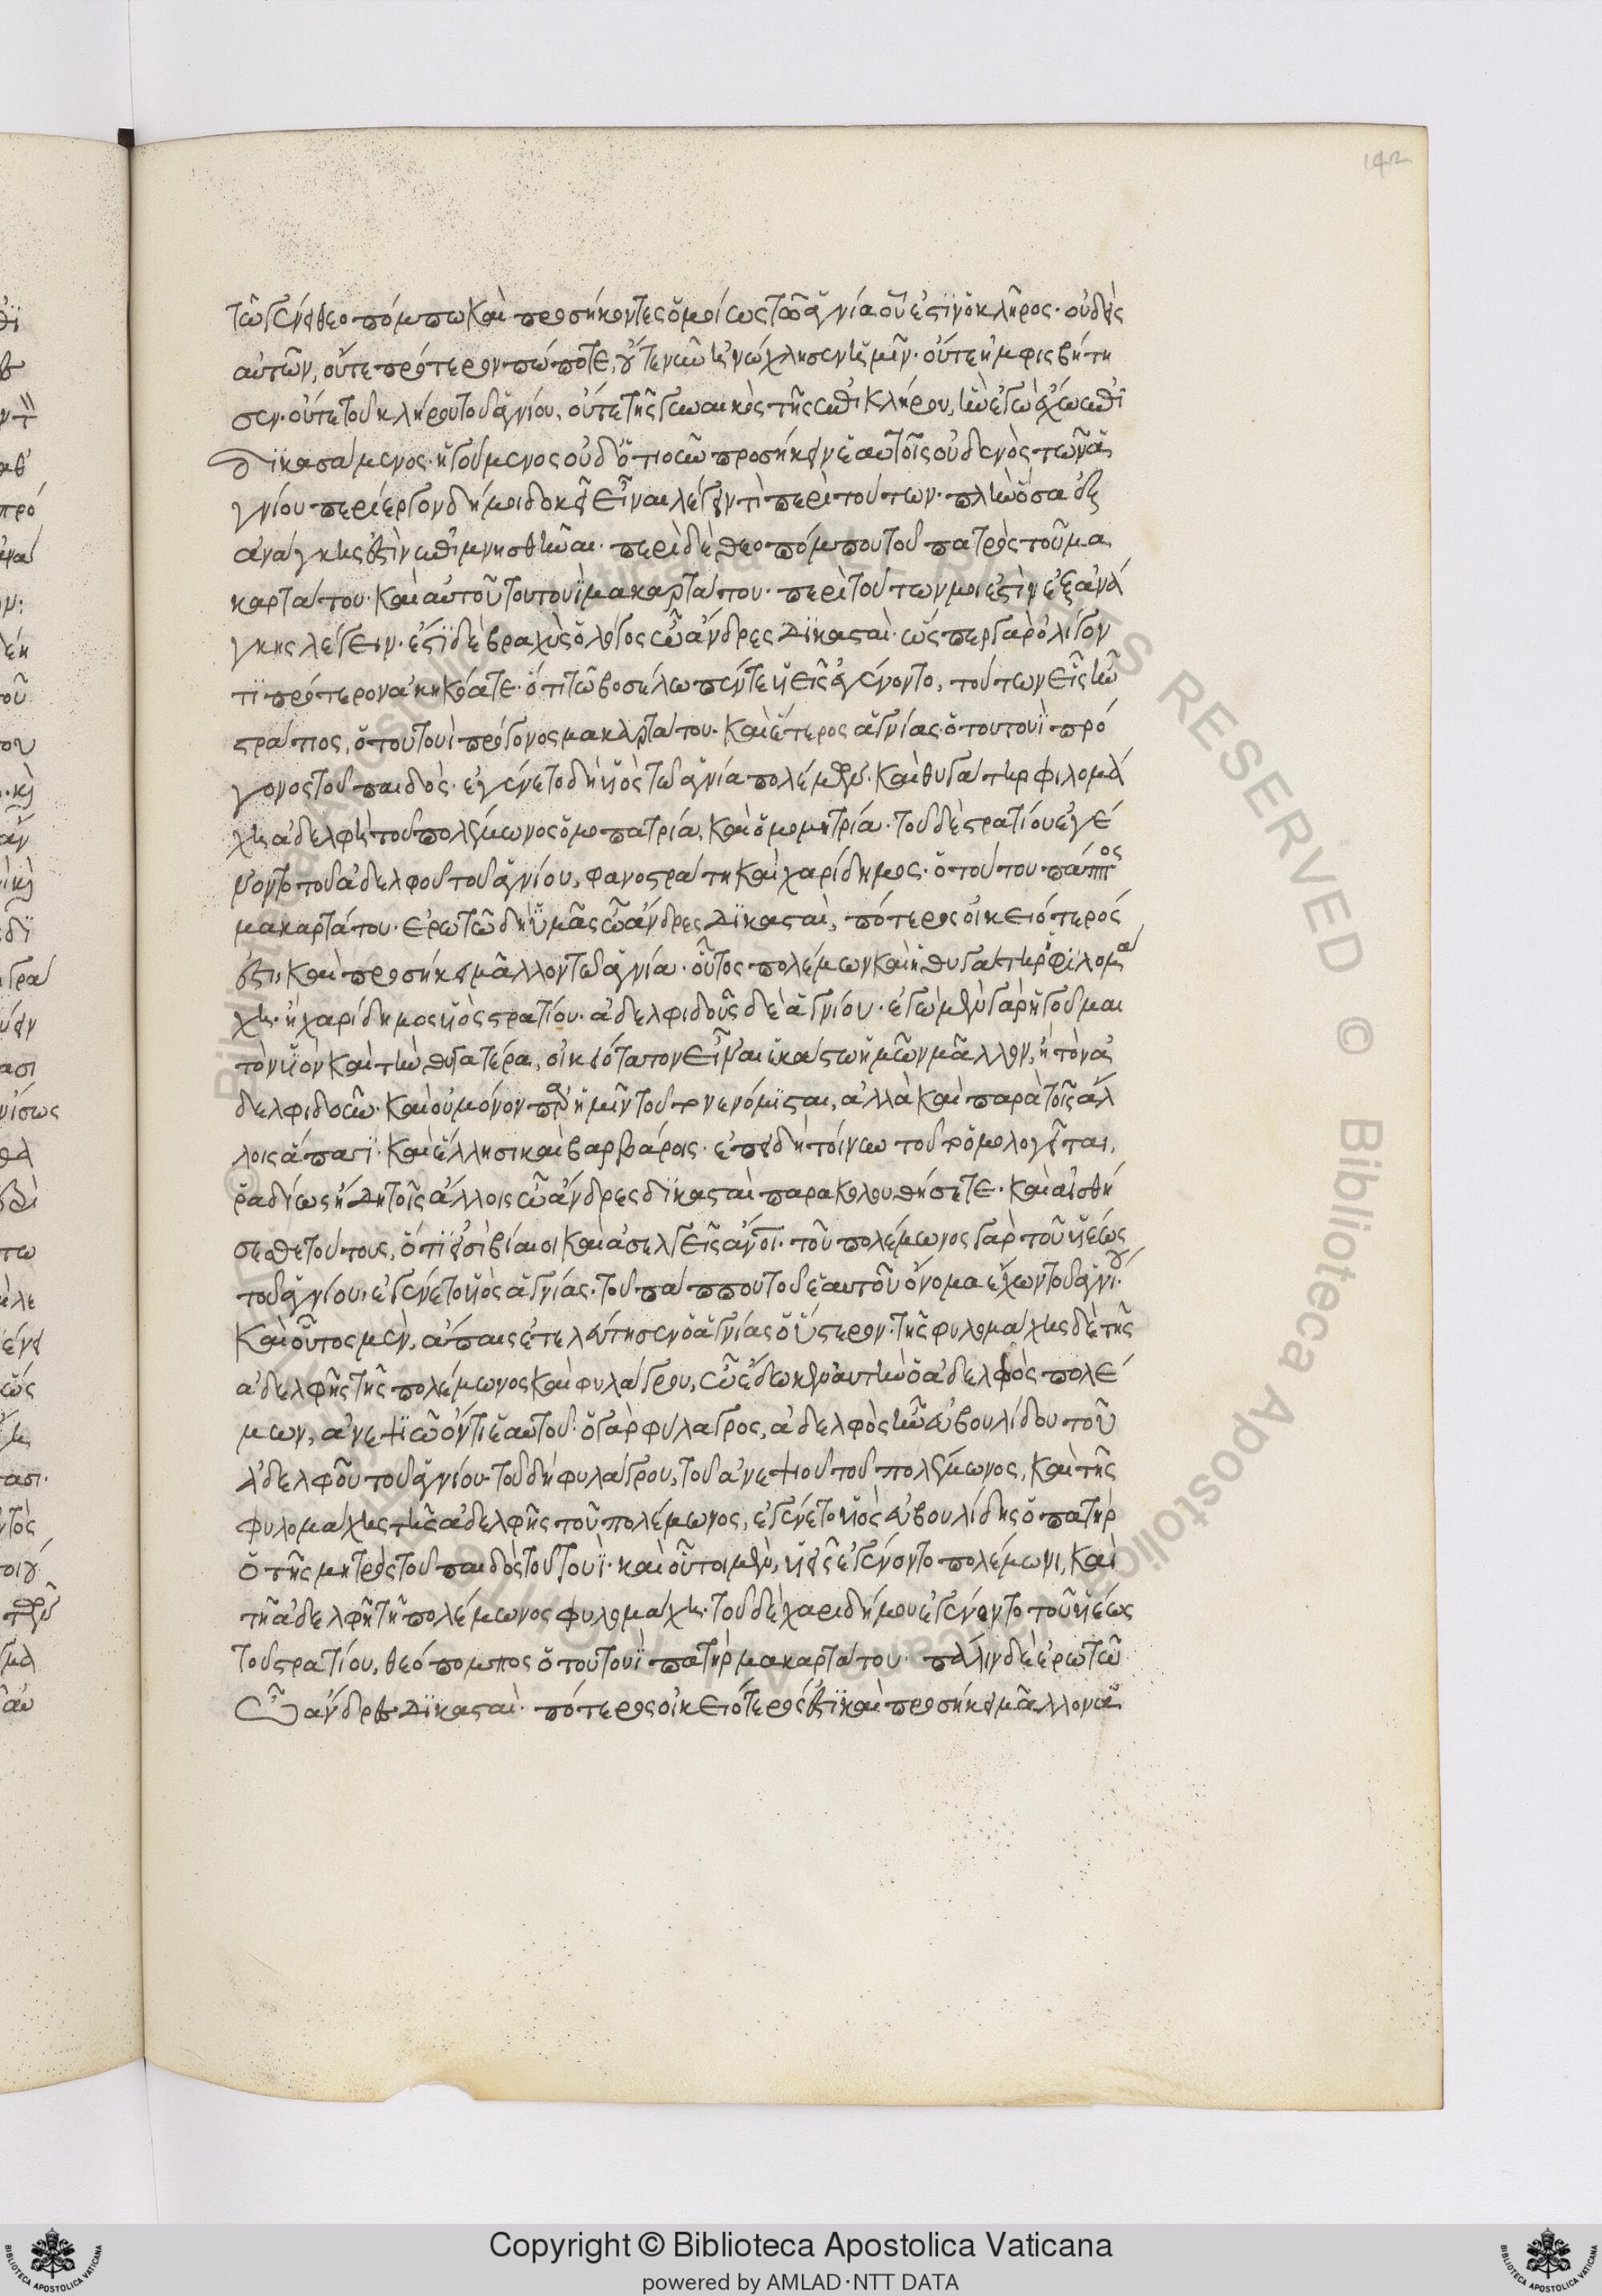 142
τῶ γένει θεοπόμπω καὶ προσήκοντες ὁμοίως τῶ ἁγνία οὗ ἐστὶν ὁ κλῆρος· οὐδεὶς
αὐτῶν, οὔτε πρότερον πώποτε, οὔτε νῦν ἠνώχλησεν ἡμῖν· οὔτε ἠμφισβήτη
σεν· οὔτε τοῦ κλήρου τοῦ ἁγνίου, οὔτε τῆς γυναικὸς τῆς ἐπικλήρου, ἣν ἐγὼ ἔχω ἐπι
δικασάμενος· ἡγούμενος οὐδ' ὁτιοῦν προσήκειν ἑαυτοῖς οὐδενὸς τῶν ἁ
γνίου περίεργον δή μοι δοκεῖ εἶναι λέγειν τὶ περὶ τούτων· πλὴν ὅσα ἐξ
ἀνάγκης ἐστὶν ἐπιμνησθῆναι· περὶ δὲ θεοπόμπου τοῦ πατρὸς τοῦ μα
καρτάτου· καὶ αὐτοῦ τουτουῒ μακαρτάτου· περὶ τούτων μοι ἐστὶν ἐξ ἀνά
γκης λέγειν· ἔστι δὲ βραχὺς ὁ λόγος ὦ ἄνδρες δικασταὶ· ὥσπερ γὰρ ὀλίγον
τι πρότερον ἀκηκόατε· ὅτι τῶ βοσήλω πέντε υἱεῖς ἐγένοντο, τούτων εἷς ἦν
στράτιος, ὁ τουτουὶ πρόγονος μακαρτάτου· καὶ ἕτερος ἁγνίας ὁ τουτουῒ πρό
γονος τοῦ παιδὸς· ἐγένετο δὴ υἱὸς τῶ ἁγνία πολέμων· καὶ θυγάτηρ φιλομά
χη ἀδελφὴ τοῦ πολέμωνος ὁμοπατρία, καὶ ὁμομητρία· τοῦ δὲ στρατίου ἐγέ
νοντο τοῦ ἀδελφοῦ τοῦ ἁγνίου, φανοστράτη καὶ χαρίδημος· ὁ τούτου πάππος
μακαρτάτου· ἐρωτῶ δὴ ὑμᾶς ὦ ἄνδρες δικασταὶ, πότερος οἰκειότερός
ἐστι, καὶ προσήκει μᾶλλον τῶ ἁγνία· οὗτος πολέμων καὶ ἡ θυγάτηρ φιλομά
χη· ἢ χαρίδημος υἱὸς στρατίου· ἀδελφιδοῦς δὲ ἁγνίου· ἐγὼ μὲν γὰρ ἡγοῦμαι
τὸν υἱὸν καὶ τὴν θυγατέρα, οἰκειότατον εἶναι ἑκάστω ἡμῶν μᾶλλον, ἢ τὸν ἀ
δελφιδοῦν· καὶ οὐ μόνον παρ' ἡμῖν τοῦτο νενόμισται, ἀλλὰ καὶ παρὰ τοῖς ἄλ
λοις ἅπασι· καὶ ἕλλησι καὶ βαρβάροις· ἐπειδὴ τοίνυν τοῦτο ὁμολογεῖται,
ῥαδίως ἤδη τοῖς ἄλλοις ὦ ἄνδρες δικασταὶ παρακολουθήσετε· καὶ αἰσθή
σεσθε τούτους, ὅτι εἰσὶ βίαιοι καὶ ἀσελγεῖς ἄνοι· τοῦ πολέμωνος γὰρ τοῦ υἱέως
τοῦ ἁγνίου, ἐγένετο υἱὸς ἁγνίας· τοῦ πάππου τοῦ ἑαυτοῦ ὄνομα ἔχων τοῦ ἁγνίου·
καὶ οὗτος μὲν, ἄπαις ἐτελεύτησεν ὁ ἁγνίας ὁ ὕστερον· τῆς φυλομάχης δὲ τῆς
ἀδελφῆς τῆς πολέμωνος καὶ φυλάγρου, ὧ ἔδωκεν αὐτὴν ὁ ἀδελφὸς πολέ
μων, ἀνεψιῶ ὄντι ἑαυτοῦ· ὁ γὰρ φύλαγρος, ἀδελφὸς ἦν εὐβουλίδου τοῦ
ἀδελφοῦ τοῦ ἁγνίου· τοῦ δὴ φυλάγρου, τοῦ ἀνεψιοῦ τοῦ πολέμωνος, καὶ τῆς
φυλομάχης τῆς ἀδελφῆς τοῦ πολέμωνος, ἐγένετο υἱὸς εὐβουλίδης ὁ πατὴρ
ὁ τῆς μητρὸς τοῦ παιδὸς τουτουῒ· καὶ οὗτοι μὲν, υἱεῖς ἐγένοντο πολέμωνι, καὶ
τῆ ἀδελφῆ τῆ πολέμωνος φυλομάχη· τοῦ δὲ χαριδήμου ἐγένοντο τοῦ υἱέως
τοῦ στρατίου, θεόπομπος ὁ τουτουῒ πατὴρ μακαρτάτου· πάλιν δὲ ἐρωτῶ
ὦ ἄνδρες δικασταὶ· πότερος οἰκειότερός ἐστι καὶ προσήκει μᾶλλον ἁ
Copyright © Biblioteca Apostolica Vaticana
powered by AMLAD·NTT DATA